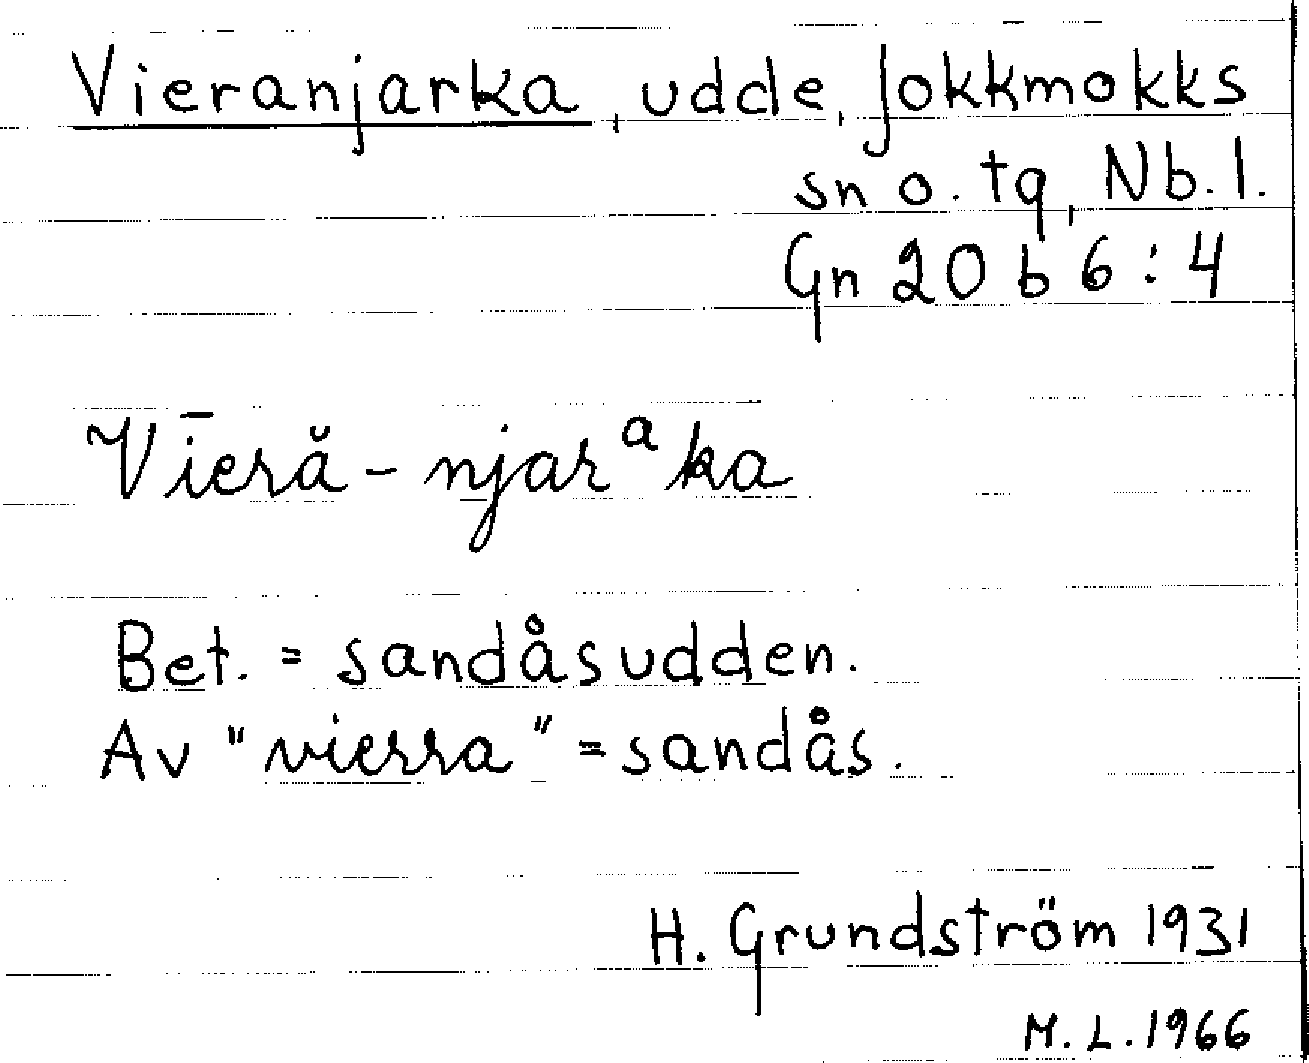 Vieranjarka, udde, Jokkmokks
sn o. tg, Nb. l.
Gn 20 b 6:4
Vīeră-njarᵃka
Bet. = sandåsudden.
Av "vierra" = sandås.
H. Grundström 1931
M. L. 1966